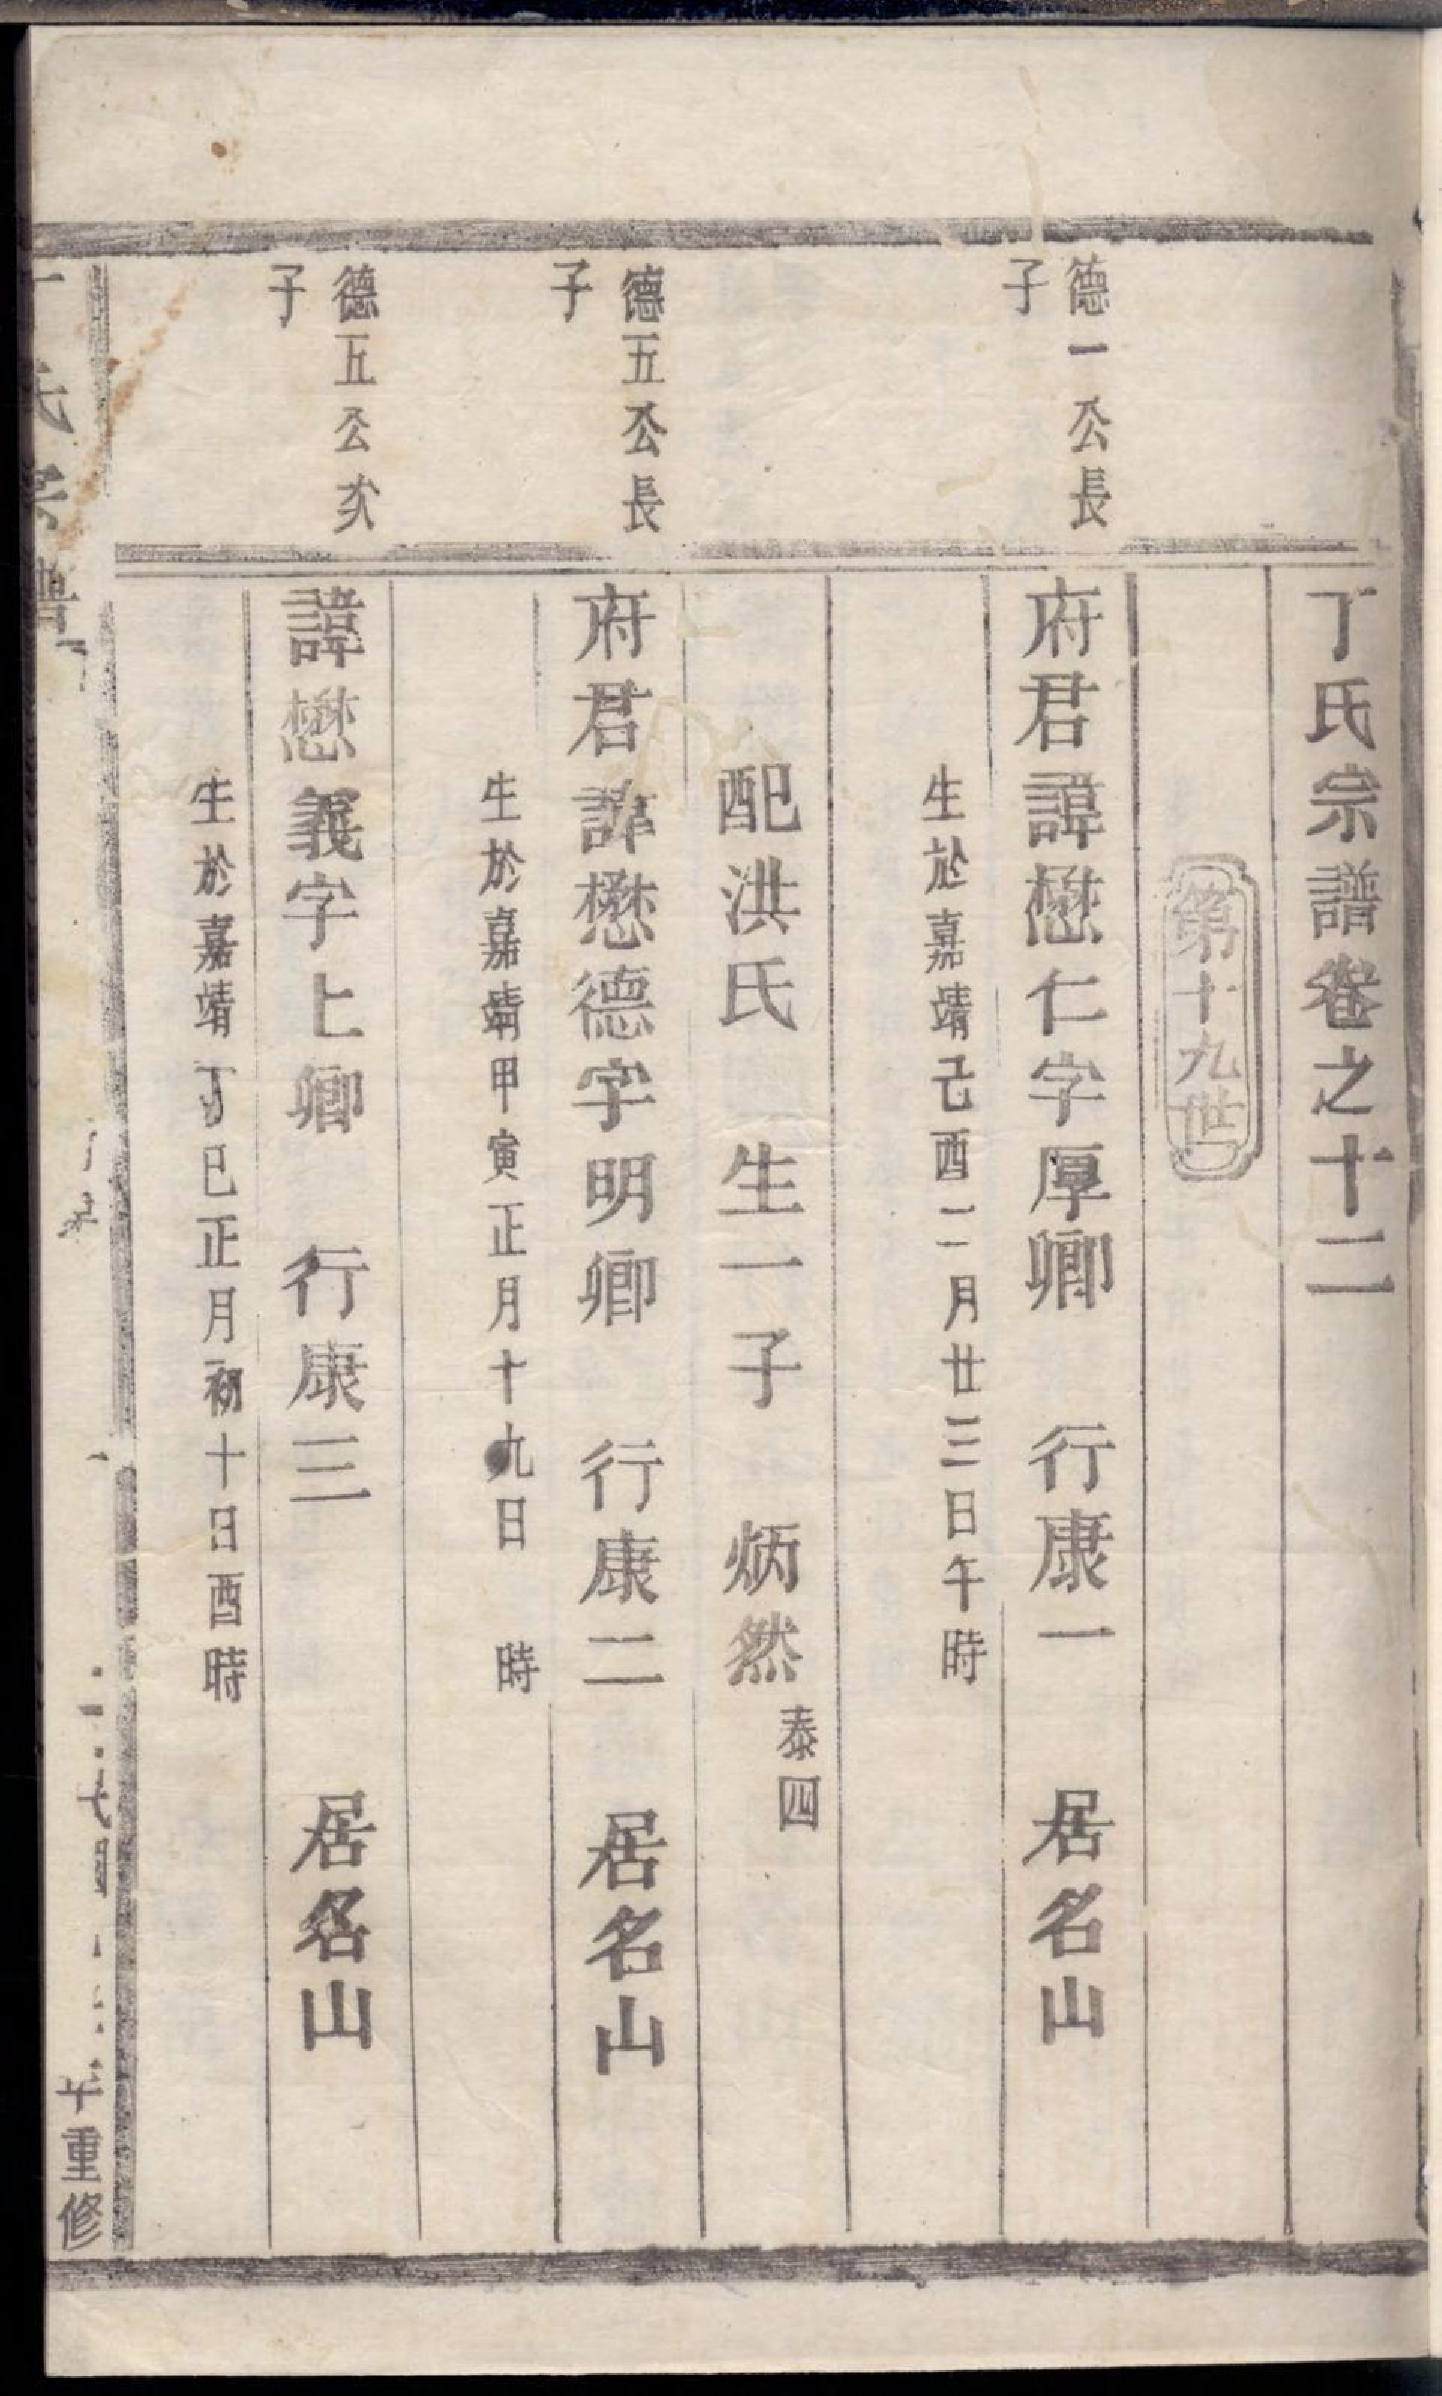 丁氏宗譜卷之十二
第十九世
德一公長
子
府君諱懋仁字厚卿 行康一 居名山
生於嘉靖己酉二月廿三日午時
配洪氏 生一子 炳然 泰四
德五公長
子
府君諱懋德字明卿 行康二 居名山
生於嘉靖甲寅正月十九日 時
德五公次
子
諱懋義字上卿 行康三 居名山
生於嘉靖丁巳正月初十日酉時
氏宗譜
年重修